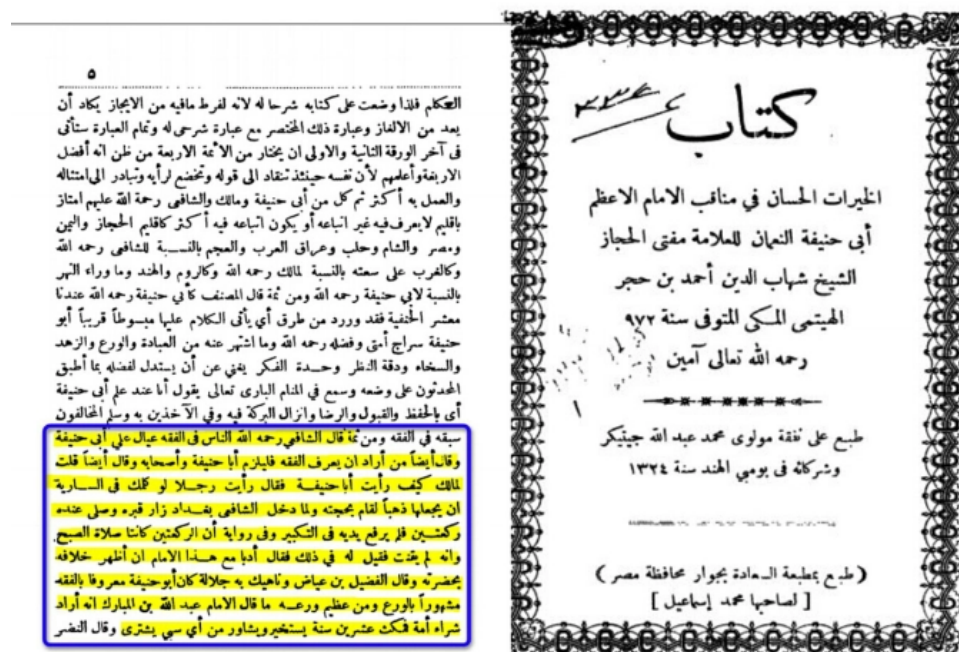 ٥
التحكم فلذا وضعت على كتابه شرحا له لانه لفرط مافيه من الايجاز يكاد أن
يعد من الالغاز وعبارة ذلك المختصر مع عبارة شرحى له وتمام العبارة ستأتى
فى آخر الورقة الثانية والاولى ان يختار من الأئمة الاربعة من ظن انه أفضل
الاربعة وأعلمهم لأن نفسه حينئذ تنقاد الى قوله وتخضع لرأيه وتبادر الى امتثاله
والعمل به أكثر ثم كل من أبى حنيفة ومالك والشافعى رحمة الله عليهم امتاز
باقليم لايعرف فيه غير اتباعه أو يكون اتباعه فيه أكثر كاقليم الحجاز واليمن
ومصر والشام وحلب وعراق العرب والعجم بالنسبة للشافعى رحمه الله
وكالغرب على سعته بالنسبة لمالك رحمه الله وكالروم والهند وما وراء النهر
بالنسبة لابى حنيفة رحمه الله ومن ثمة قال المصنف كأبى حنيفة رحمه الله عندنا
معشر الحنفية فقد ورد من طرق أى يأتى الكلام عليها مبسوطاً قريباً أبو
حنيفة سراج أمتى وفضله رحمه الله وما اشتهر عنه من العبادة والورع والزهد
والسخاء ودقة النظر وحدة الفكر يغنى عن أن يستدل لفضله بما أطبق
المحدثون على وضعه وسمع فى المنام البارى تعالى يقول أنا عند علم أبى حنيفة
أى بالحفظ والقبول والرضا وانزال البركة فيه وفى الآخذين به وسلم المخالفون
سبقه في الفقه ومن ثمة قال الشافعى رحمه الله الناس فى الفقه عيال على أبى حنيفة
وقال أيضاً من أراد ان يعرف الفقه فليلزم أبا حنيفة وأصحابه وقال أيضاً قلت
لمالك كيف رأيت أبا حنيفة فقال رأيت رجلا لو كلمك فى السارية
ان يجعلها ذهباً لقام بحجته ولما دخل الشافعى بغداد زار قبره وصلى عنده
ركعتين فلم يرفع يديه فى التكبير وفى رواية أن الركعتين كانتا صلاة الصبح
وانه لم يقنت فقيل له فى ذلك فقال أدبا مع هذا الامام ان أظهر خلافه
بحضرته وقال الفضيل بن عياض وناهيك به جلالة كان أبوحنيفة معروفا بالفقه
مشهوراً بالورع ومن عظيم ورعه ما قال الامام عبد الله بن المبارك انه أراد
شراء أمة فمكث عشرين سنة يستخير ويشاور من أي سبي يشترى وقال النضر
كتاب
الخيرات الحسان في مناقب الامام الاعظم
أبي حنيفة النعمان للعلامة مفتى الحجاز
الشيخ شهاب الدين أحمد بن حجر
الهيتمى المكى المتوفى سنة ٩٧٢
رحمه الله تعالى آمين
طبع على نفقة مولوى محمد عبد الله جيتيكر
وشركائه فى بومبي الهند سنة ١٣٢٤
( طبع بمطبعة السعادة بجوار محافظة مصر )
[ لصاحبها محمد إسماعيل ]